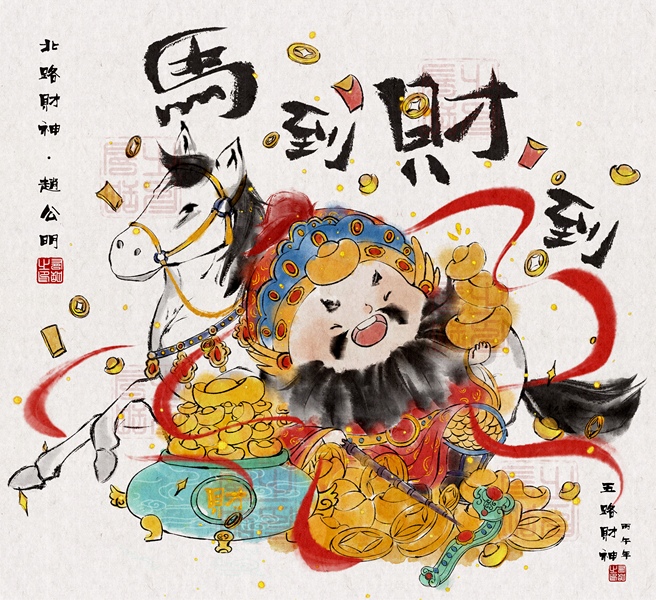 馬到財到
北路財神·趙公明
五路財神
丙午年